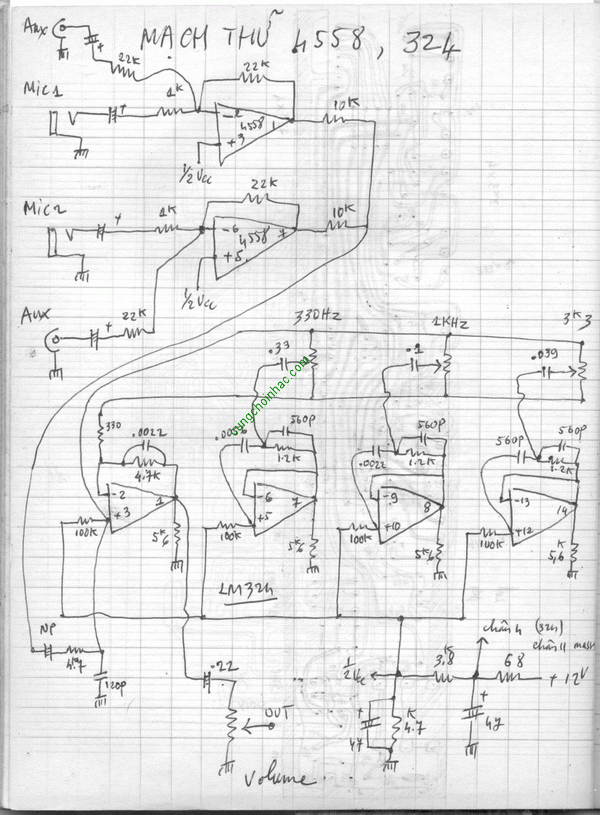 MẠCH THỬ 4558, 324
Aux
22K
Mic1
1K
22K
-2
4558
1
+3
10K
1/2 Vcc
Mic2
1K
22K
-6
4558
7
+5
10K
1/2 Vcc
Aux
22K
330Hz
1KHz
3K3
.33
.1
.039
330
.0022
4.7K
560p
1.2K
.0022
560p
1.2K
560p
560p
1.2K
-2
1
+3
-6
7
+5
-9
8
+10
-13
14
+12
100K
5K6
100K
5K6
100K
5K6
100K
K
5,6
LM324
NP
4.7
120p
.22
OUT
Volume
1/2 Vcc
3.8
68
+12V
chân 4 (324)
chân 11 mass
47
K
4.7
47
sungchoinhac.com